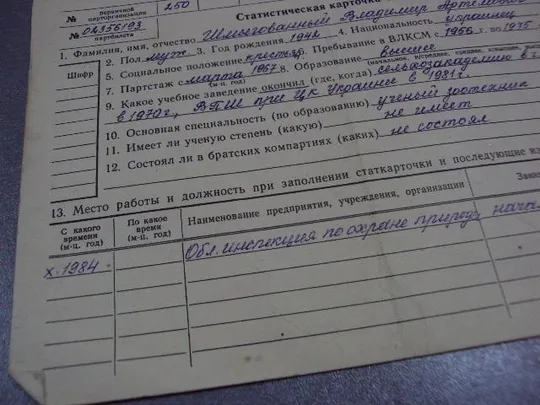 Статистическая карточка
№ первичной парторганизации 250
№ партбилета 02356193
1. Фамилия, имя, отчество Владимир
2. Пол муж 3. Год рождения 1942 4. Национальность украинец
Шифр
5. Социальное положение крестьян. 6. Пребывание в ВЛКСМ с 1956 г. по 1975
7. Партстаж с марта 1967 8. Образование высшее
(м-ц, год)
9. Какое учебное заведение окончил (где, когда) сельхозакадемию в г.
в 1970 г., ВПШ при ЦК Украины в 1981 г.
10. Основная специальность (по образованию) ученый зоотехник
11. Имеет ли ученую степень (какую) не имеет
12. Состоял ли в братских компартиях (каких) не состоял
13. Место работы и должность при заполнении статкарточки и последующие из
С какого времени (м-ц, год)
По какое время (м-ц, год)
Наименование предприятия, учреждения, организации
X. 1984 - Обл. инспекция по охране природы